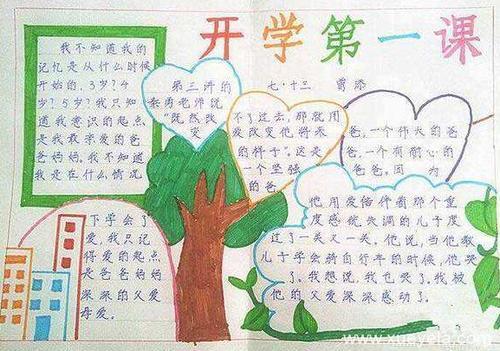 开学第一课
七·十三 曾添
我不知道我的
记忆是从什么时候
开始的，3岁？4
岁？5岁？我只知
道我意识的起点
是我最亲爱的爸
爸妈妈。我不知道
我是在什么情况
下学会了
爱，我只记
得爱的起点
是爸爸妈妈
深深的父爱
母爱。
第三讲的
秦勇老师说
“既然改变
不了过去，那就用
爱改变他将来
的样子”。这是
一个坚强
的爸
爸，一个伟大的爸
爸，一个有耐心的
爸爸。因为
他用爱陪伴着那个重
度感统失调的儿子度
过了一关又一关。他说，当他教
儿子学会骑自行车的时候，他哭
了。我想说，我也哭了。我被
他的父爱深深感动了。
www.xueyela.com